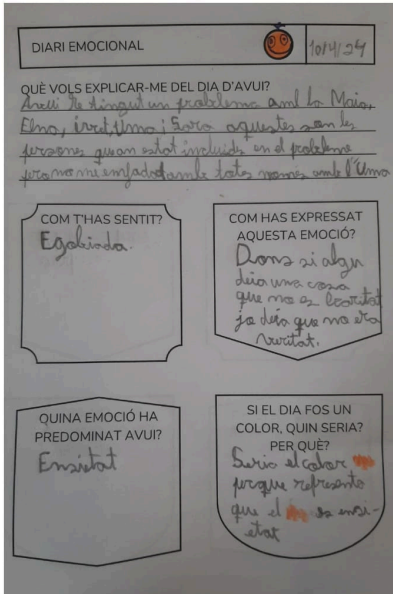 DIARI EMOCIONAL
10/4/24
QUÈ VOLS EXPLICAR-ME DEL DIA D'AVUI?
Avui he tingut un problema amb la Maia,
Elna, iret, Uma i Sara aquestes son les
persones que an estat incluides en el problema
pero no me enfadat amb totes nomes amb l'Uma
COM T'HAS SENTIT?
Egobiada.
COM HAS EXPRESSAT
AQUESTA EMOCIÓ?
Dons si algu
deia una cosa
que no es veritat
jo deia que no era
veritat.
QUINA EMOCIÓ HA
PREDOMINAT AVUI?
Ensietat
SI EL DIA FOS UN
COLOR, QUIN SERIA?
PER QUÈ?
Seria el color
perque representa
que el es ensi-
etat